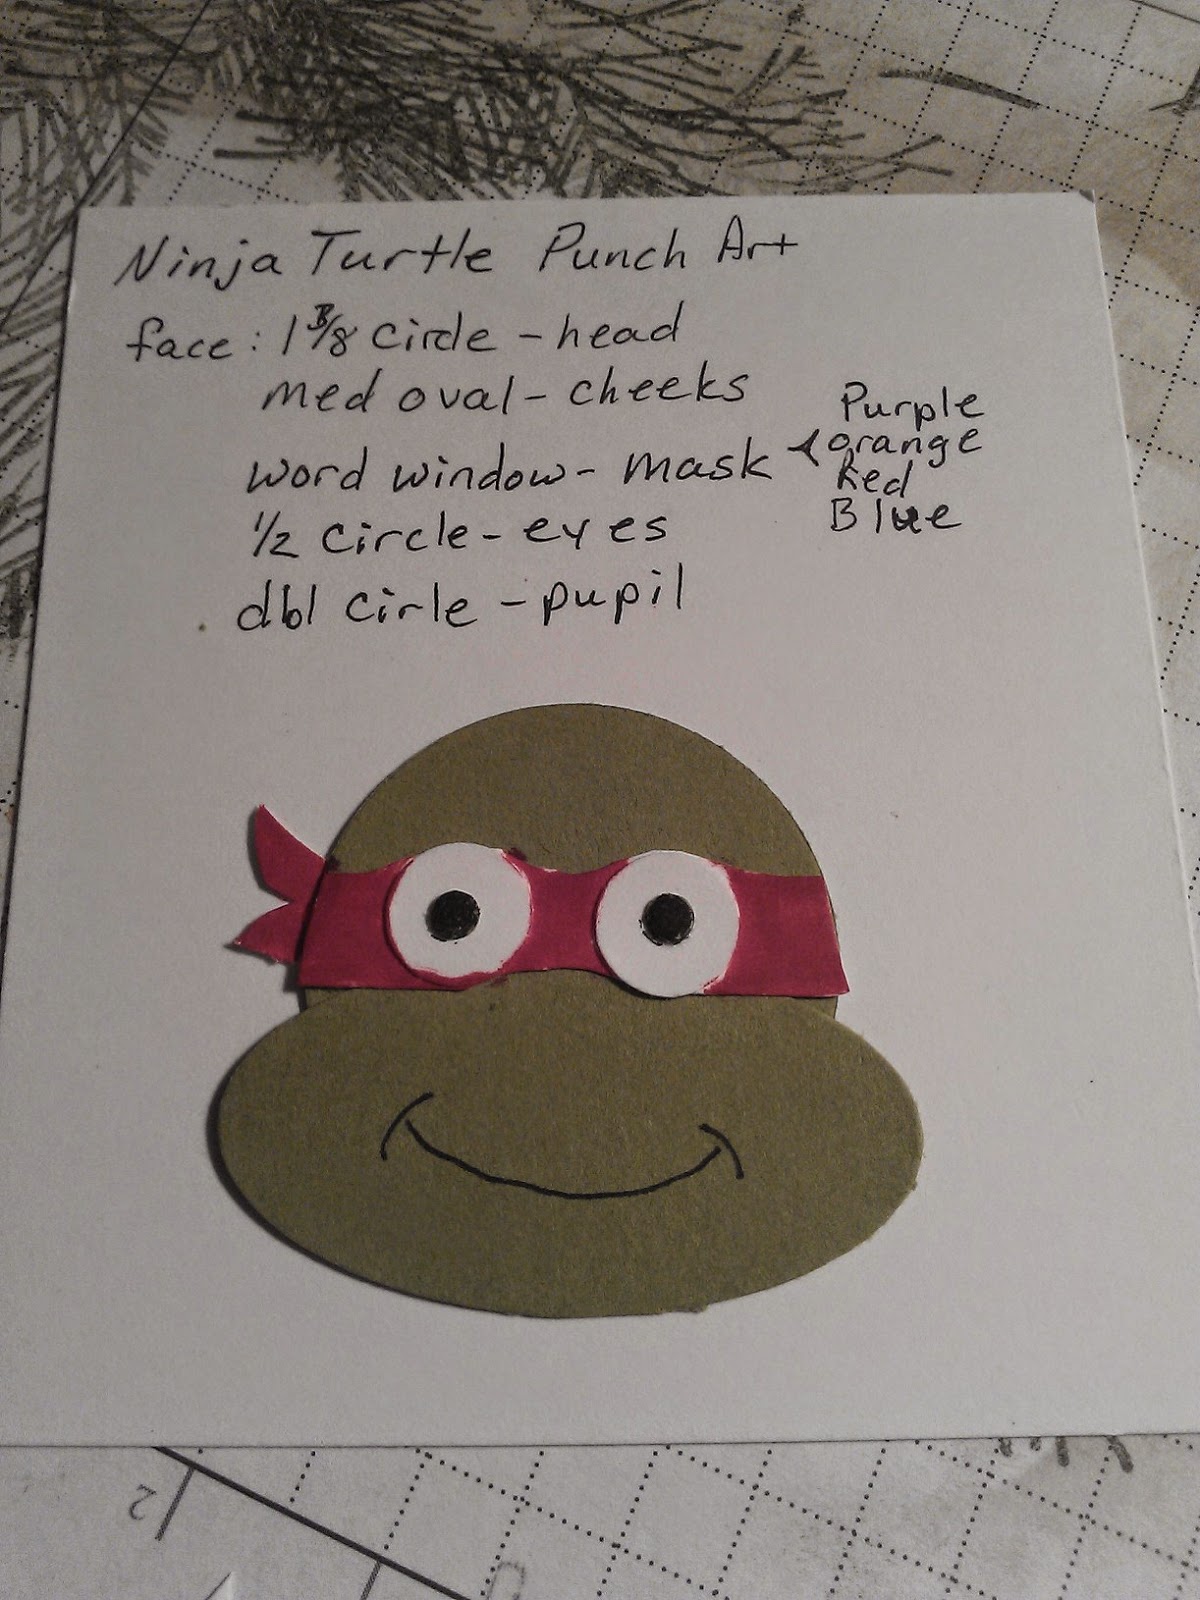 Ninja Turtle Punch Art
face: 1 3/8 circle - head
med oval - cheeks
word window - mask <
Purple
orange
Red
Blue
1/2 circle - eyes
dbl cirle - pupil
12